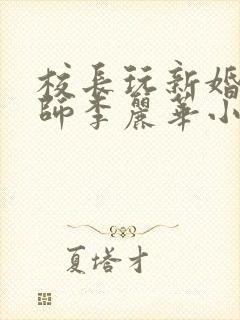 校長玩新婚
師李麗華小
夏塔才